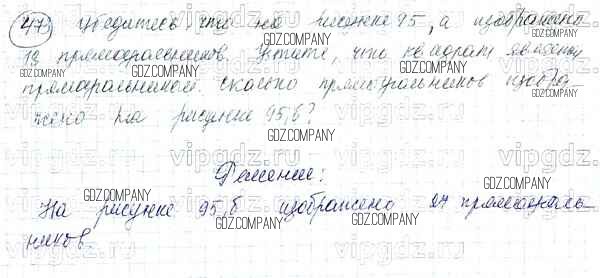 473 Убедитесь, что на рисунке 95, а изображено
19 прямоугольников. Учтите, что квадрат является
прямоугольником. Сколько прямоугольников изобра-
жено на рисунке 95, б?
Решение:
На рисунке 95, б изображено 27 прямоуголь-
ников.
GDZ.COMPANY
vipgdz.ru